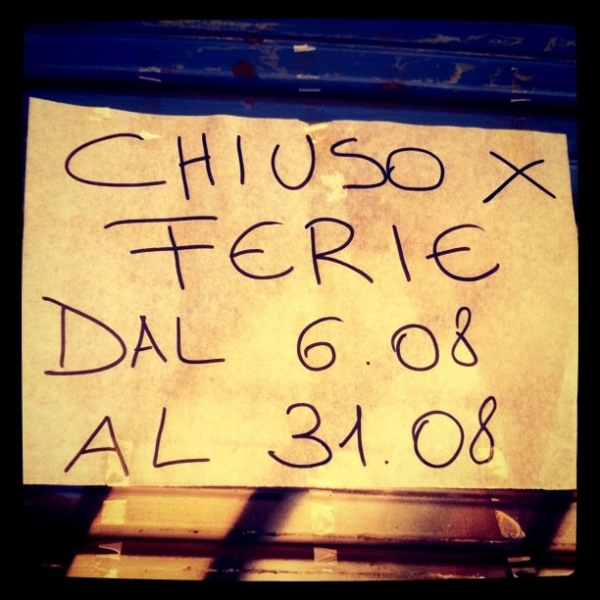 CHIUSO X
FERIE
DAL 6.08
AL 31.08